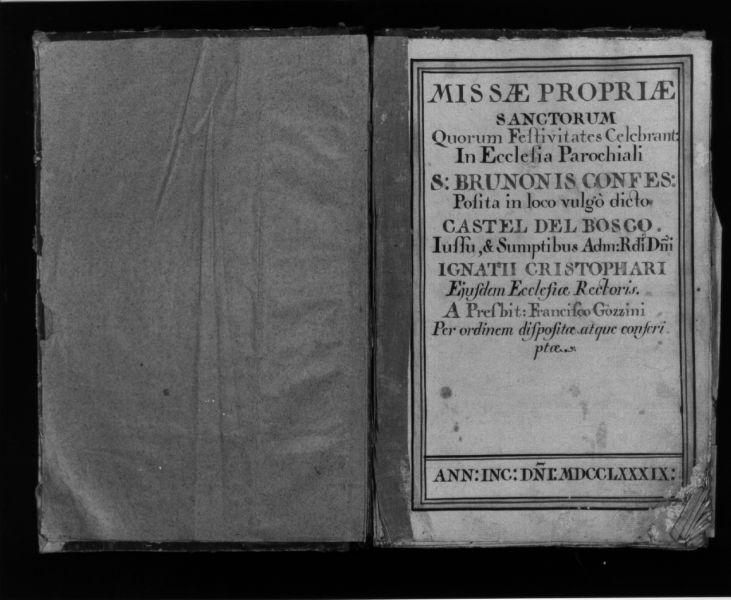 MISSÆ PROPRIÆ
SANCTORUM
Quorum Feſtivitates Celebrant:
In Eccleſia Parochiali
S: BRUNONIS CONFES:
Poſita in loco vulgò dicto
CASTEL DEL BOSCO.
Iuſſu, & Sumptibus Adm: Rdi Dñi
IGNATII CRISTOPHARI
Ejuſdem Eccleſiæ Rectoris.
A Preſbit: Franciſco Gòzzini
Per ordinem diſpoſitæ atque conſcri
ptæ.
ANN: INC: DÑI: MDCCLXXXIX: